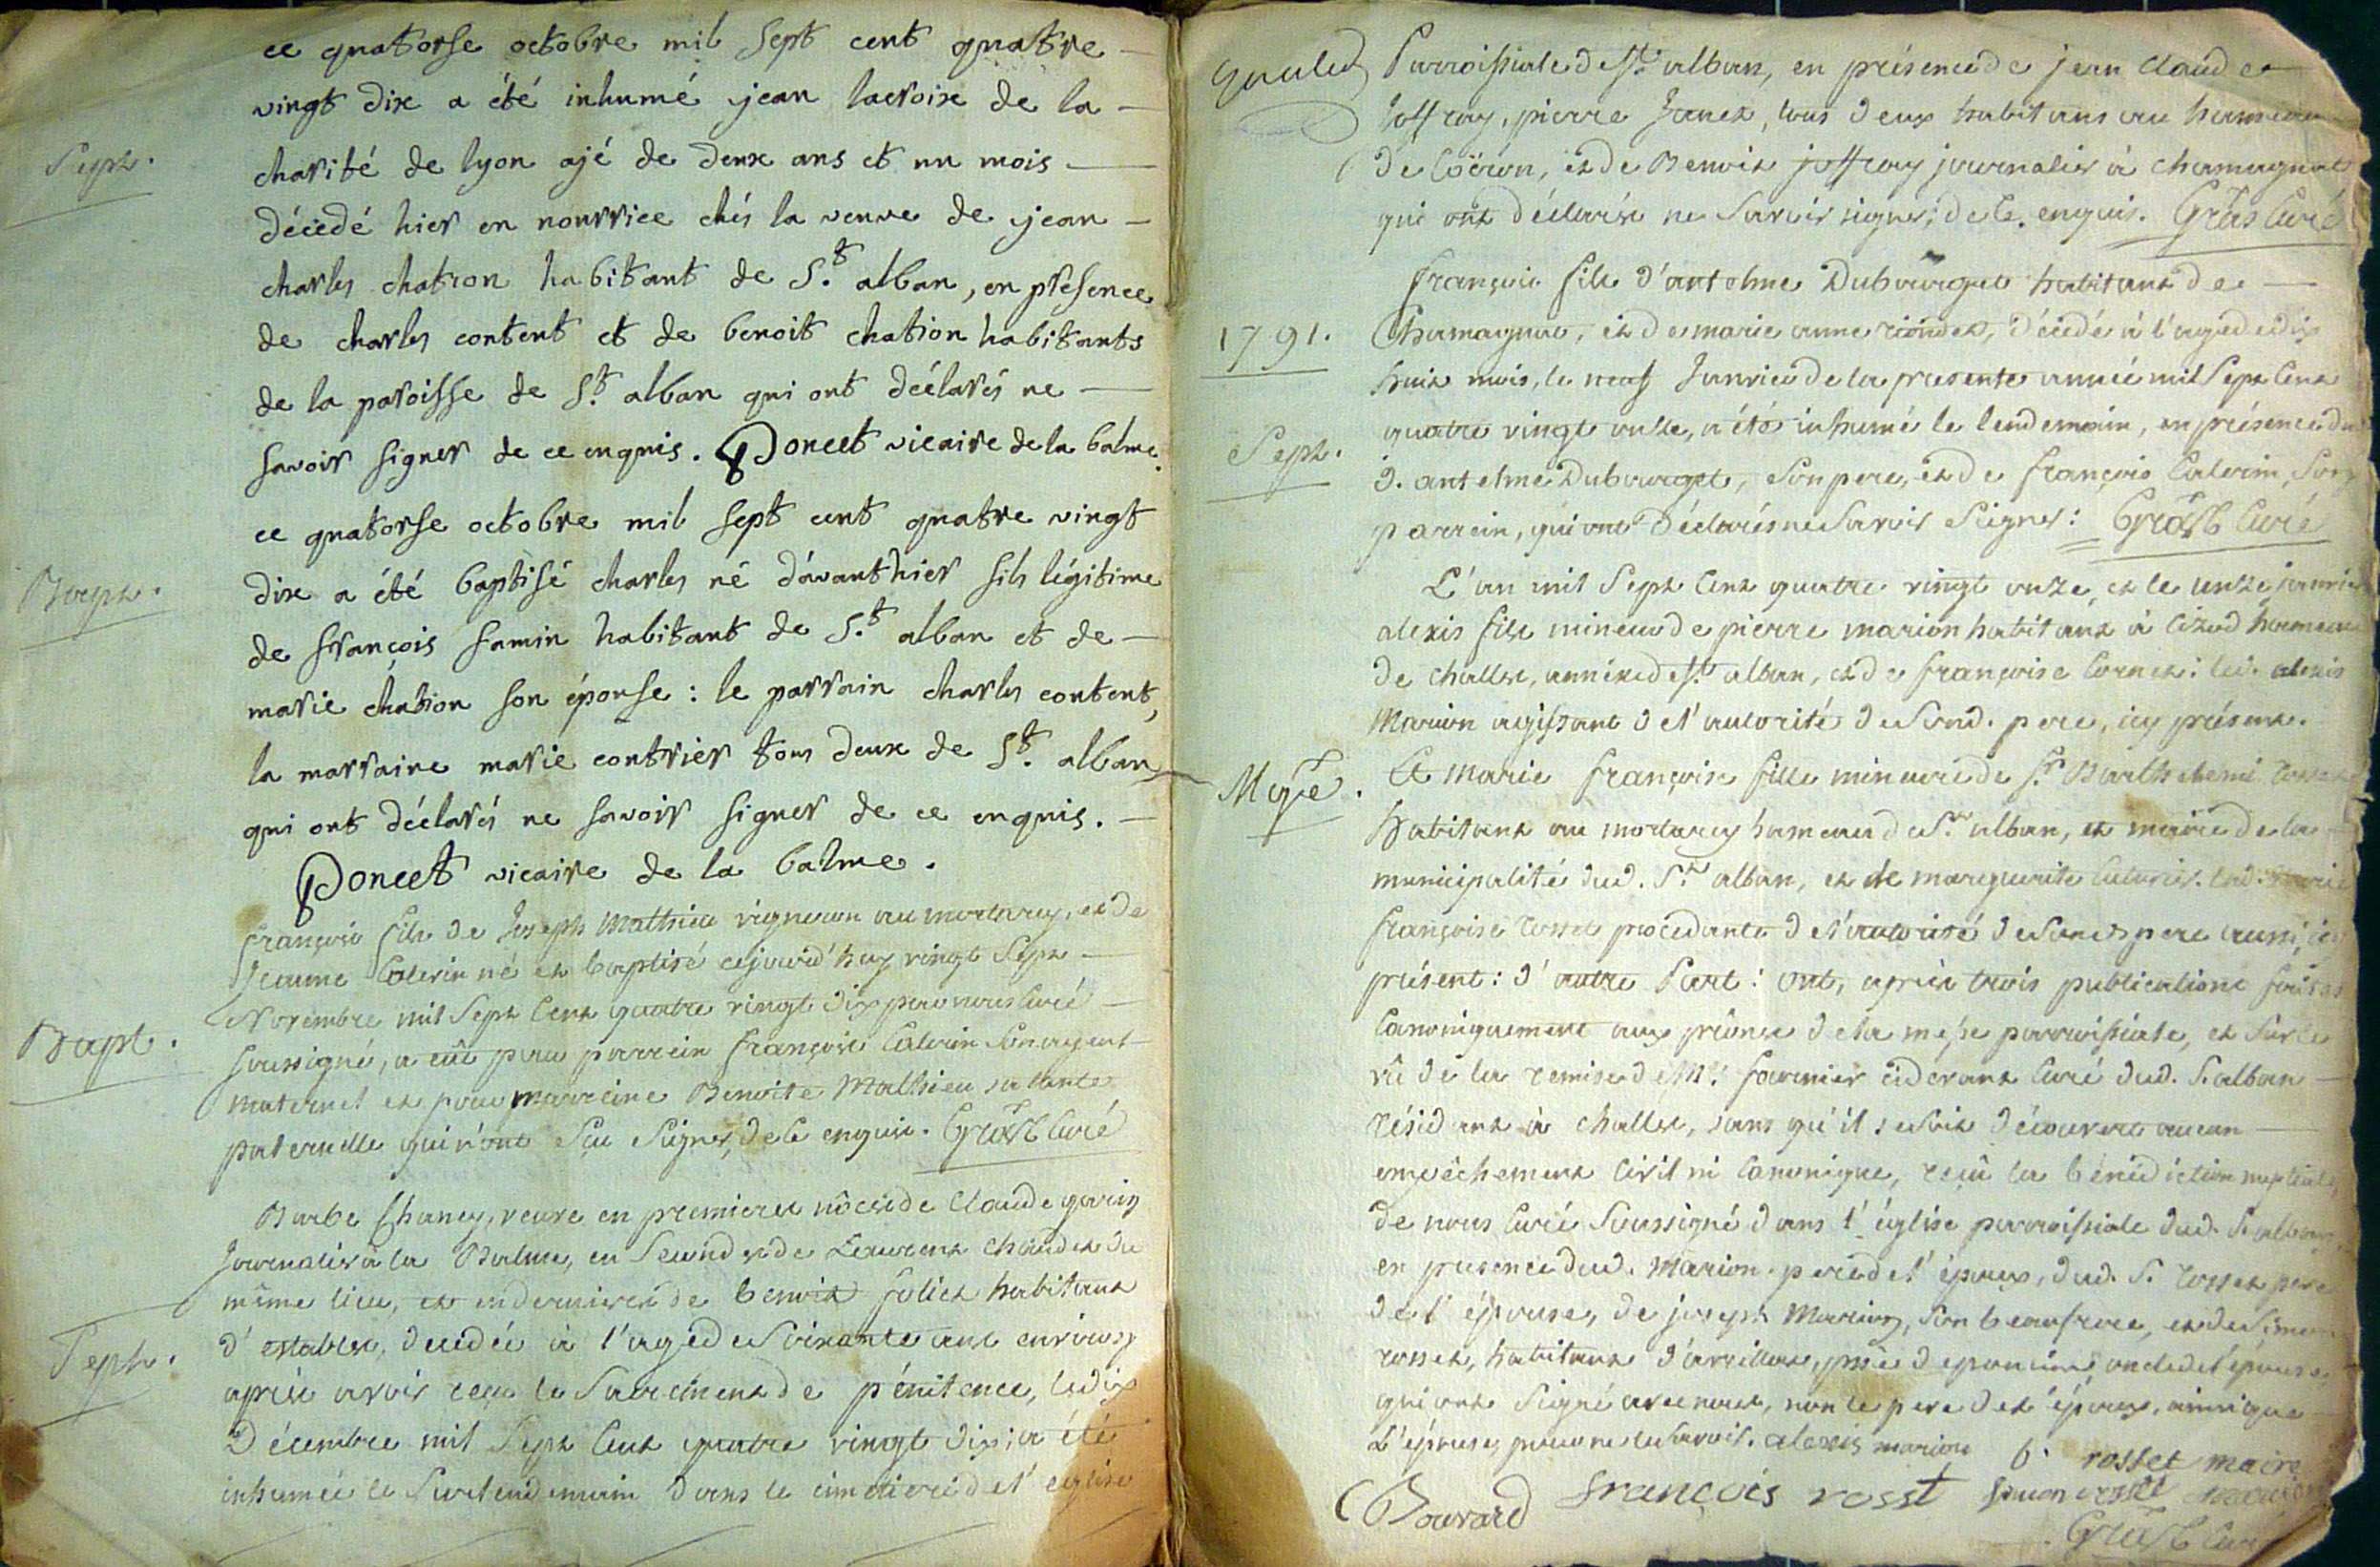 ce quatorse octobre mil sept cent quatre
vingt dix a été inhumé jean lacroix de la
Sept.
charité de lyon ajé de deux ans et un mois
décedé hier en nourrice chés la veuve de jean
charles chatron habitant de St. alban, en presence
de charles content et de benoit chation habitants
de la paroisse de St. alban qui ont déclarés ne
savoir signer de ce enquis. Poncet vicaire de la balme.
ce quatorse octobre mil sept cent quatre vingt
Bapt.
dix a été baptisé charles né d'avanthier fils légitime
de françois samin habitant de St. alban et de
marie chation son épouse : le parrain charles content,
la marraine marie contrier tous deux de St. alban
qui ont déclarés ne savoir signer de ce enquis.
Poncet vicaire de la balme.
françois fils de Joseph Mathieu vigneron au mortarey, et de
Jeanne Calerin né et baptisé cejourd'huy vingt Sept
Bapt.
Novembre mil Sept Cent quatre vingt dix par nous Curé
soussigné, a eût pour parrein françois Calerin Son
maternel et pour marreine Benoite Mathieu sa tante
paternelle qui n'ont Scu Signer, de Ce enquis. Curé
Barbe Chaney, veuve en premieres nôces de Claude garin
Journalier à la Balme, en Secondes de Laurent chaudet du
même lieu, et en dernieres de benoit folliet habitant
Sept.
d'estables, decedée à l'age de Soixante ans environ
après avoir reçu le Sacrement de pénitence, le dix
Décembre mil Sept Cent quatre vingt dix; a été
inhumée le Surlendemain dans le cimetiere de l'eglise
Parroissiale de St. alban, en présence de jean Claude
Joffray, pierre Janet, tous deux habitans au hameau
de Coëron, et de Benoit joffray journalier à chamagnat
qui ont déclarés ne Savoir signer, de Ce enquis. Curé
françois fils d'antelme Dubourget habitant de
1791.
Chamagnat, et de marie anne riondet, décédé à l'age de dix
huit mois, le neuf Janvier de la presente année mil Sept Cent
Sept.
quatre vingt onze, a été inhumé le lendemain, en présence du
d. antelme Dubourget, Son pere, et de françois Calerin, Son
parrein, qui ont déclarés ne Savoir Signer: Curé
L'an mil Sept Cent quatre vingt onze, et le onze janvier
alexis fils mineur de pierre marion habitant à hameau
de challes, annexe de St. alban, et de françoise Cornet: led. alexis
Marion agissant de l'autorité de Sond. pere, icy présent.
Mage.
Et Marie françoise fille mineure de Sr. Barthelemi rosset
habitant au mortarey hameau de St. alban, et maire de la
municipalité dud. St. alban, et de marguerite lad. marie
françoise rosset procedante de l'autorité de Sond. pere aussi icy
présent: d'autre Part: ont, après trois publications faites
Canoniquement aux prônes de la messe parroissiale, et Sur le
vû de la remise de Mr. fournier cidevant Curé dud. St. alban
résidant à challes, sans qu'il se Soit découvert aucun
empêchement Civil ni Canonique, reçu la bénédiction nuptiale
de nous Curé Soussigné dans l'église parroissiale dud. St. alban
en presence dud. Marion pere de l'époux, dud. Sr. rosset pere
de l'épouse, de joseph Marion, Son beaufrere, et de Simon
rosset, habitant oncle de l'épouse,
qui ont Signé avec nous, non le pere de l'époux, ainsi que
L'épouse, pour ne le Savoir. alexis marion b. rosset maire
Bouvard françois rosst Simon rosset marion
Curé